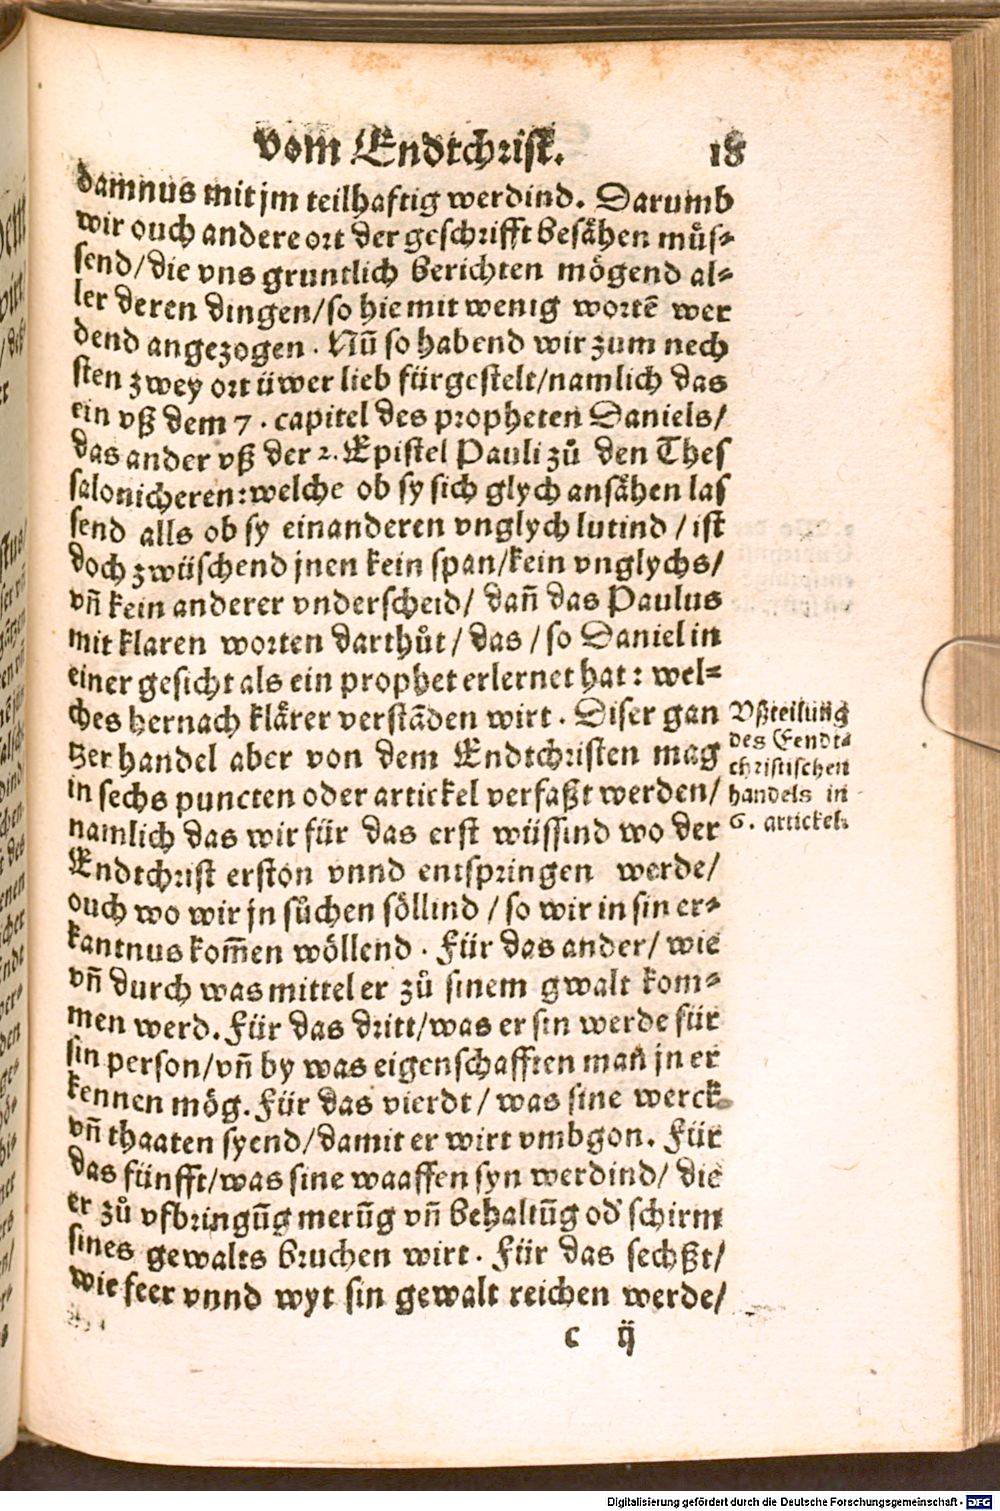 vom Endtchrist. 18
damnus mit jm teilhafftig werdind. Darumb
wir ouch andere ort der geschrifft besähen müs-
send/die vns gruntlich berichten mögend al-
ler deren dingen/so hie mit wenig wortē wer
dend angezogen. Nū so habend wir zum nech
sten zwey ort üwer lieb fürgestelt/namlich das
ein vß dem 7. capitel des propheten Daniels/
das ander vß der 2. Epistel Pauli zů den Thes
salonicheren: welche ob sy sich glych ansähen las
send alls ob sy einanderen vnglych lutind/ist
doch zwüschend jnen kein span/kein vnglychs/
vn̄ kein anderer vnderscheid/ dan̄ das Paulus
mit klaren worten darthůt/das/so Daniel in
einer gesicht als ein prophet erlernet hat: wel-
ches hernach klärer verstādē wirt. Diser gan
tzer handel aber von dem Endtchristen mag
in sechs puncten oder artickel verfaßt werden/
namlich das wir für das erst wüssind wo der
Endtchrist erston vnnd entspringen werde/
ouch wo wir jn sůchen söllind/so wir in sin er-
kantnus kom̄en wöllend. Für das ander/wie
vn̄ durch was mittel er zů sinem gwalt kom-
men werd. Für das dritt/was er sin werde für
sin person/vn̄ by was eigenschafften man jn er
kennen mög. Für das vierdt/was sine werck
vn̄ thaaten syend/damit er wirt vmbgon. Für
das fünfft/was sine waaffen syn werdind/die
er zů vfbringūg merūg vn̄ behaltūg od' schirm
sines gewalts bruchen wirt. Für das sechßt/
wie feer vnnd wyt sin gewalt reichen werde/
c ij
Vßteilung
des Eendt-
christischen
handels in
6. artickel.
Digitalisierung gefördert durch die Deutsche Forschungsgemeinschaft - DFG